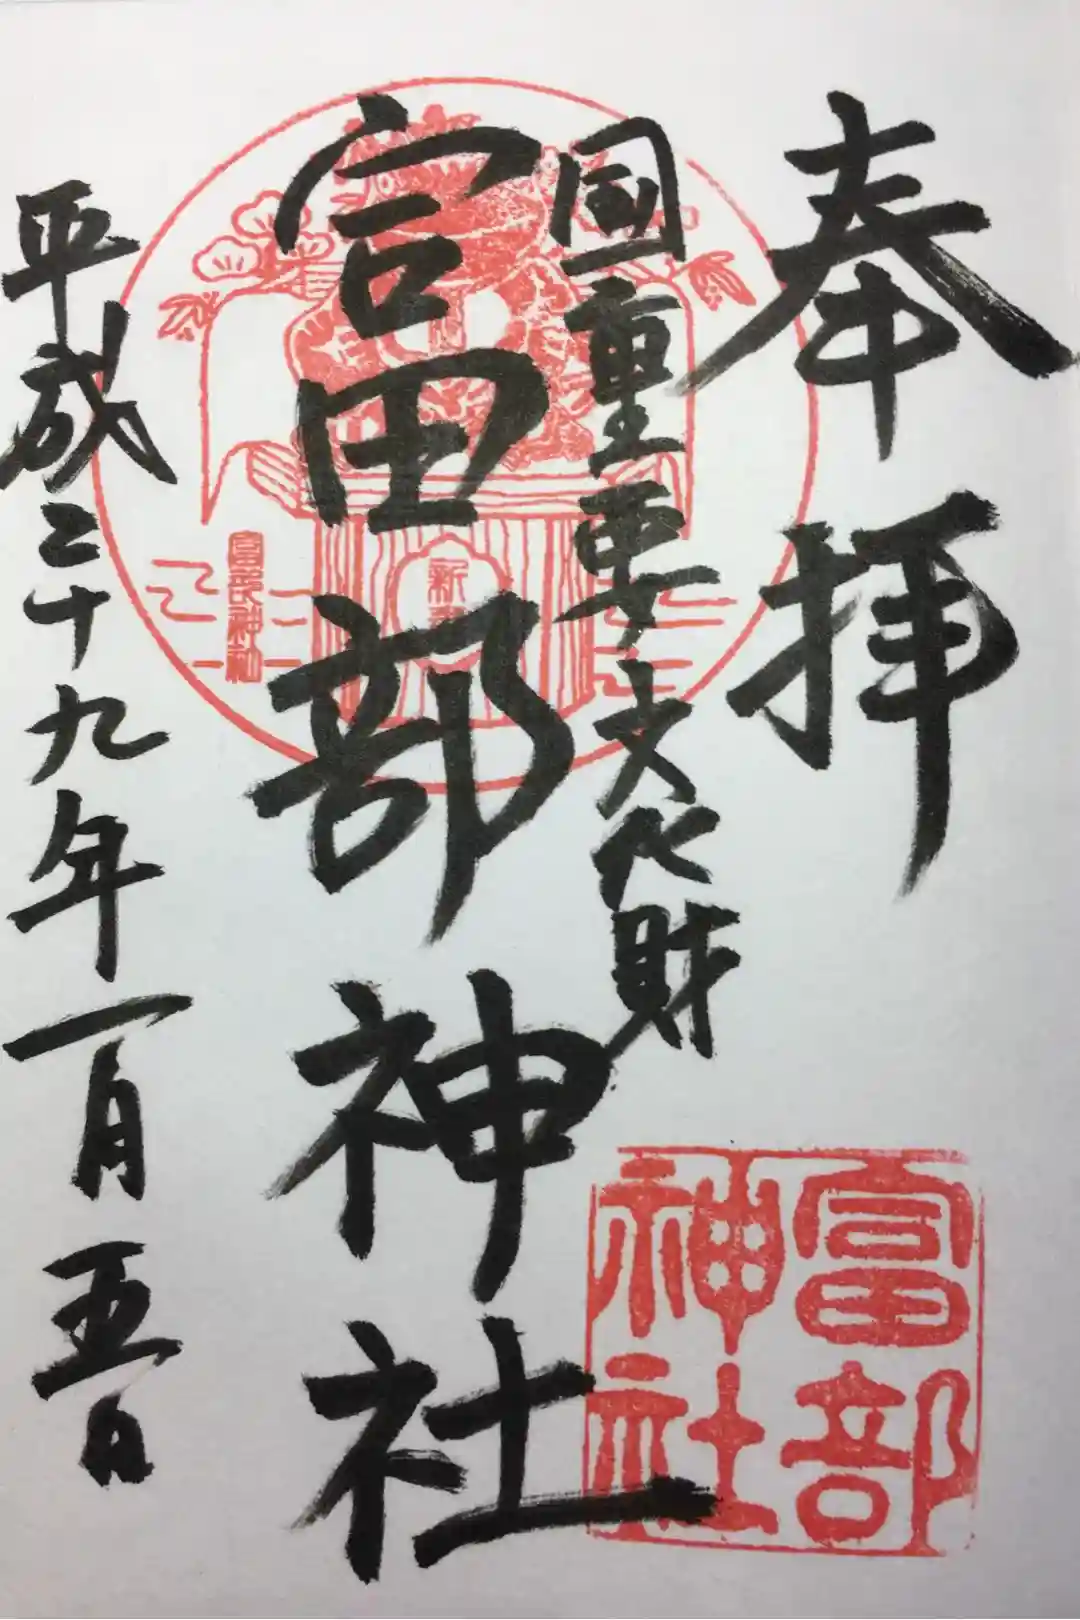 奉拝
国重要文化財
富部神社
平成二十九年一月五日
富部神社
新
富部神社